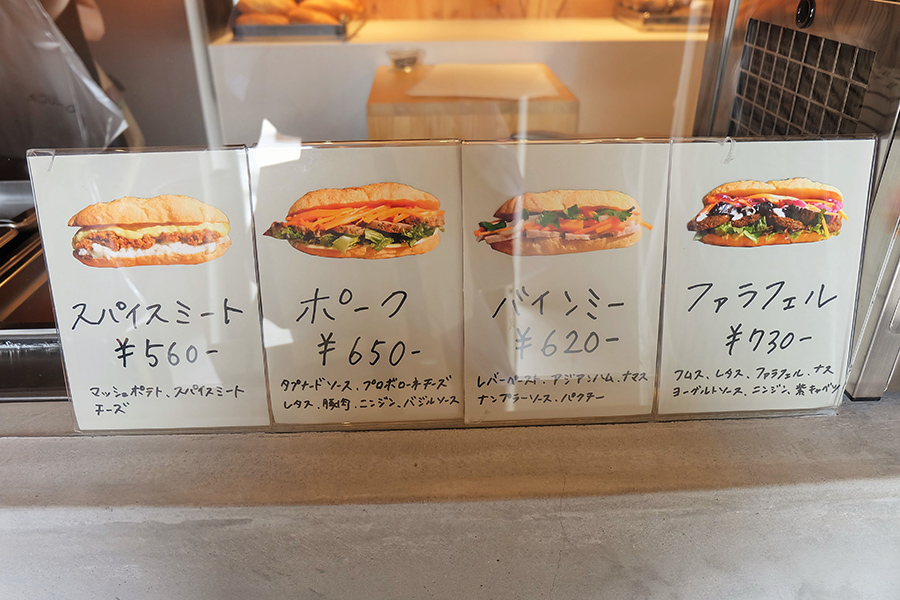 スパイスミート
¥560-
マッシュポテト、スパイスミート
チーズ
ポーク
¥650-
タプナードソース、プロボローネチーズ
レタス、豚肉、ニンジン、バジルソース
バインミー
¥620-
レバーペースト、アジアンハム、ナマス
ナンプラーソース、パクチー
ファラフェル
¥730-
フムス、レタス、ファラフェル、ナス
ヨーグルトソース、ニンジン、紫キャベツ